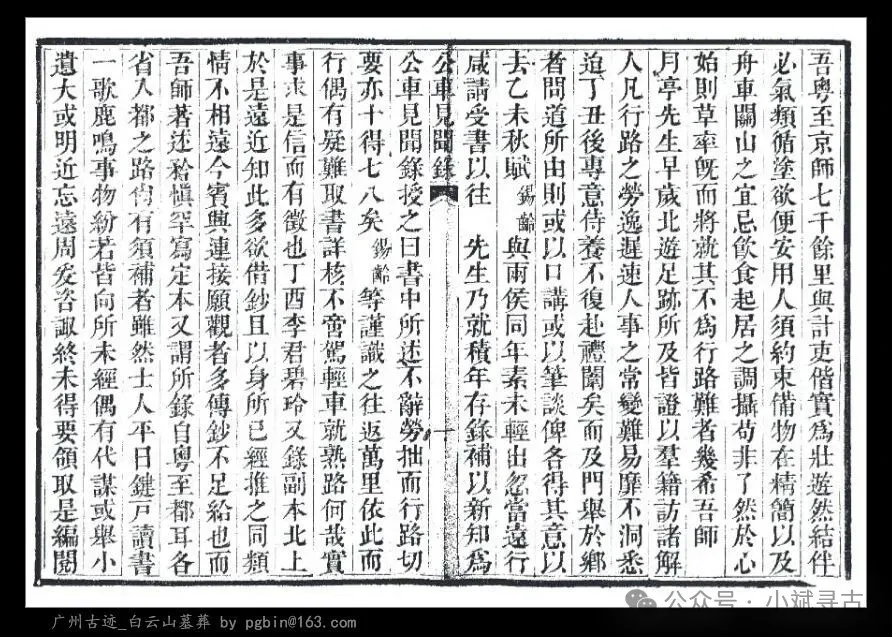 吾粵至京師七千餘里與計吏偕實爲壯遊然結伴
必氣類循塗欲便安用人須約束備物在精簡以及
舟車關山之宜忌飲食起居之調攝苟非了然於心
始則草率旣而將就其不爲行路難者幾希吾師
月亭先生早歲北遊足跡所及皆證以羣籍訪諸解
人凡行路之勞逸遲速人事之常變難易靡不洞悉
迨丁丑後專意侍養不復赴禮闈矣而及門舉於鄉
者問道所由則或以口講或以筆談俾各得其意以
去乙未秋賦錫齡與兩侯同年素未輕出忽當遠行
咸請受書以往 先生乃就積年存錄補以新知爲
公車見聞錄 一
公車見聞錄授之曰書中所述不辭勞拙而行路切
要亦十得七八矣錫齡等謹識之往返萬里依此而
行偶有疑難取書詳核不啻駕輕車就熟路何哉實
事求是信而有徵也丁酉李君碧玲又錄副本北上
於是遠近知此多欲借鈔且以身所已經推之同類
情不相遠今賓興連接願觀者多傳鈔不足給也而
吾師著述矜愼罕寫定本又謂所錄自粵至都耳各
省入都之路尙有須補者雖然士人平日鍵戸讀書
一歌鹿鳴事物紛若皆向所未經偶有代謀或舉小
遺大或明近忘遠周爰咨諏終未得要領取是編閱
广州古迹_白云山墓葬 by pgbin@163.com
公众号·小斌寻古